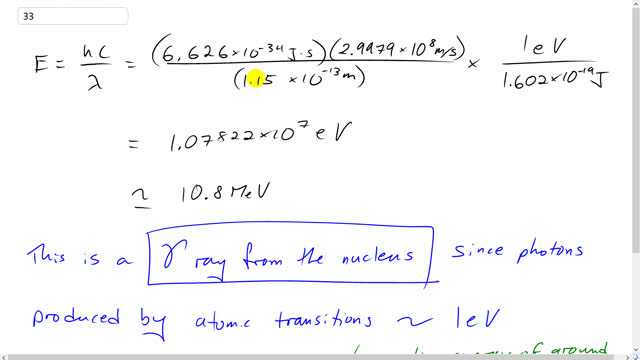 33
E = hc/λ = (6.626×10⁻³⁴ J·s)(2.9979×10⁸ m/s)/(1.15 ×10⁻¹³ m) × 1eV/1.602×10⁻¹⁹J
= 1.07822×10⁷ eV
≃ 10.8 MeV
This is a γ ray from the nucleus since photons
produced by atomic transitions ~ 1eV
energy of around